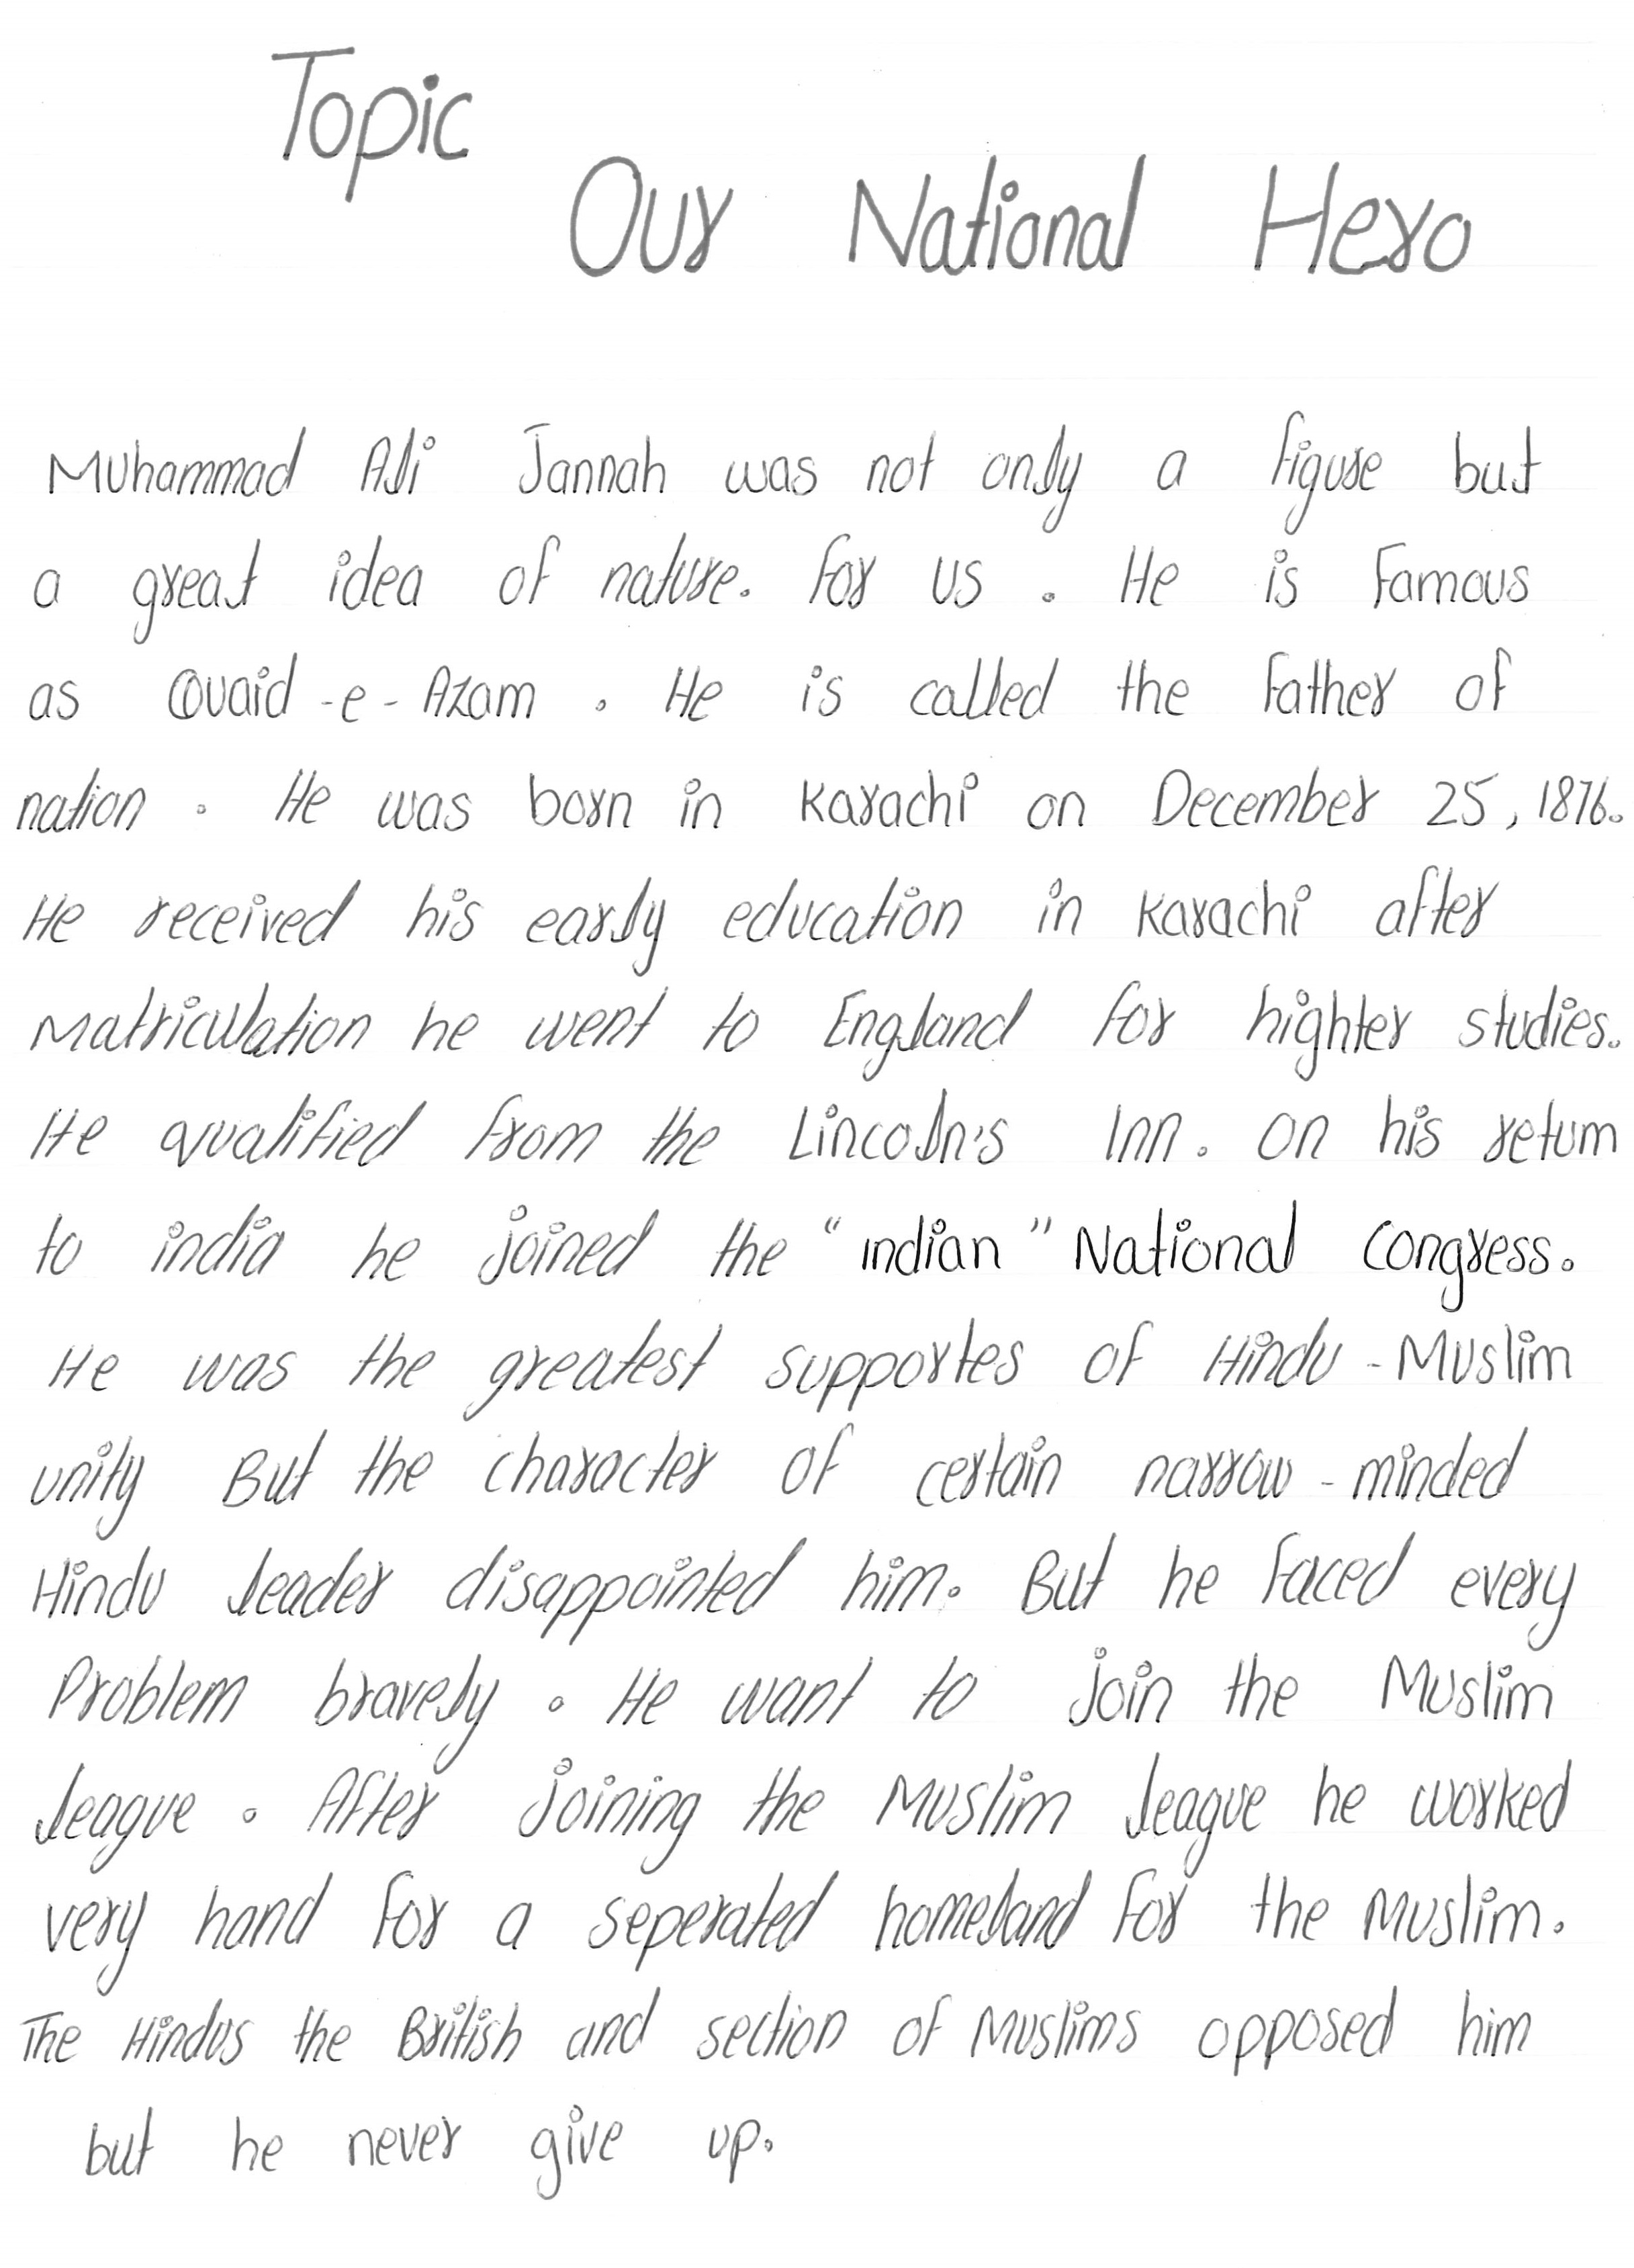 Topic
Our National Hero
Muhammad Ali Jannah was not only a figure but
a great idea of nature. for us . He is Famous
as Quaid -e- Azam . He is called the Father of
nation . He was born in Karachi on December 25, 1876.
He received his early education in Karachi after
Matriculation he went to England for highter studies.
He qualified from the Lincoln's Inn. on his retum
to india he joined the "indian" National Congress.
He was the greatest supportes of Hindu - Muslim
unity But the character of certain narrow - minded
Hindu leader disappointed him. But he faced every
Problem bravely . He want to join the Muslim
league . After joining the Muslim league he worked
very hand for a seperated homeland for the Muslim.
The Hindus the British and section of Muslims opposed him
but he never give up.